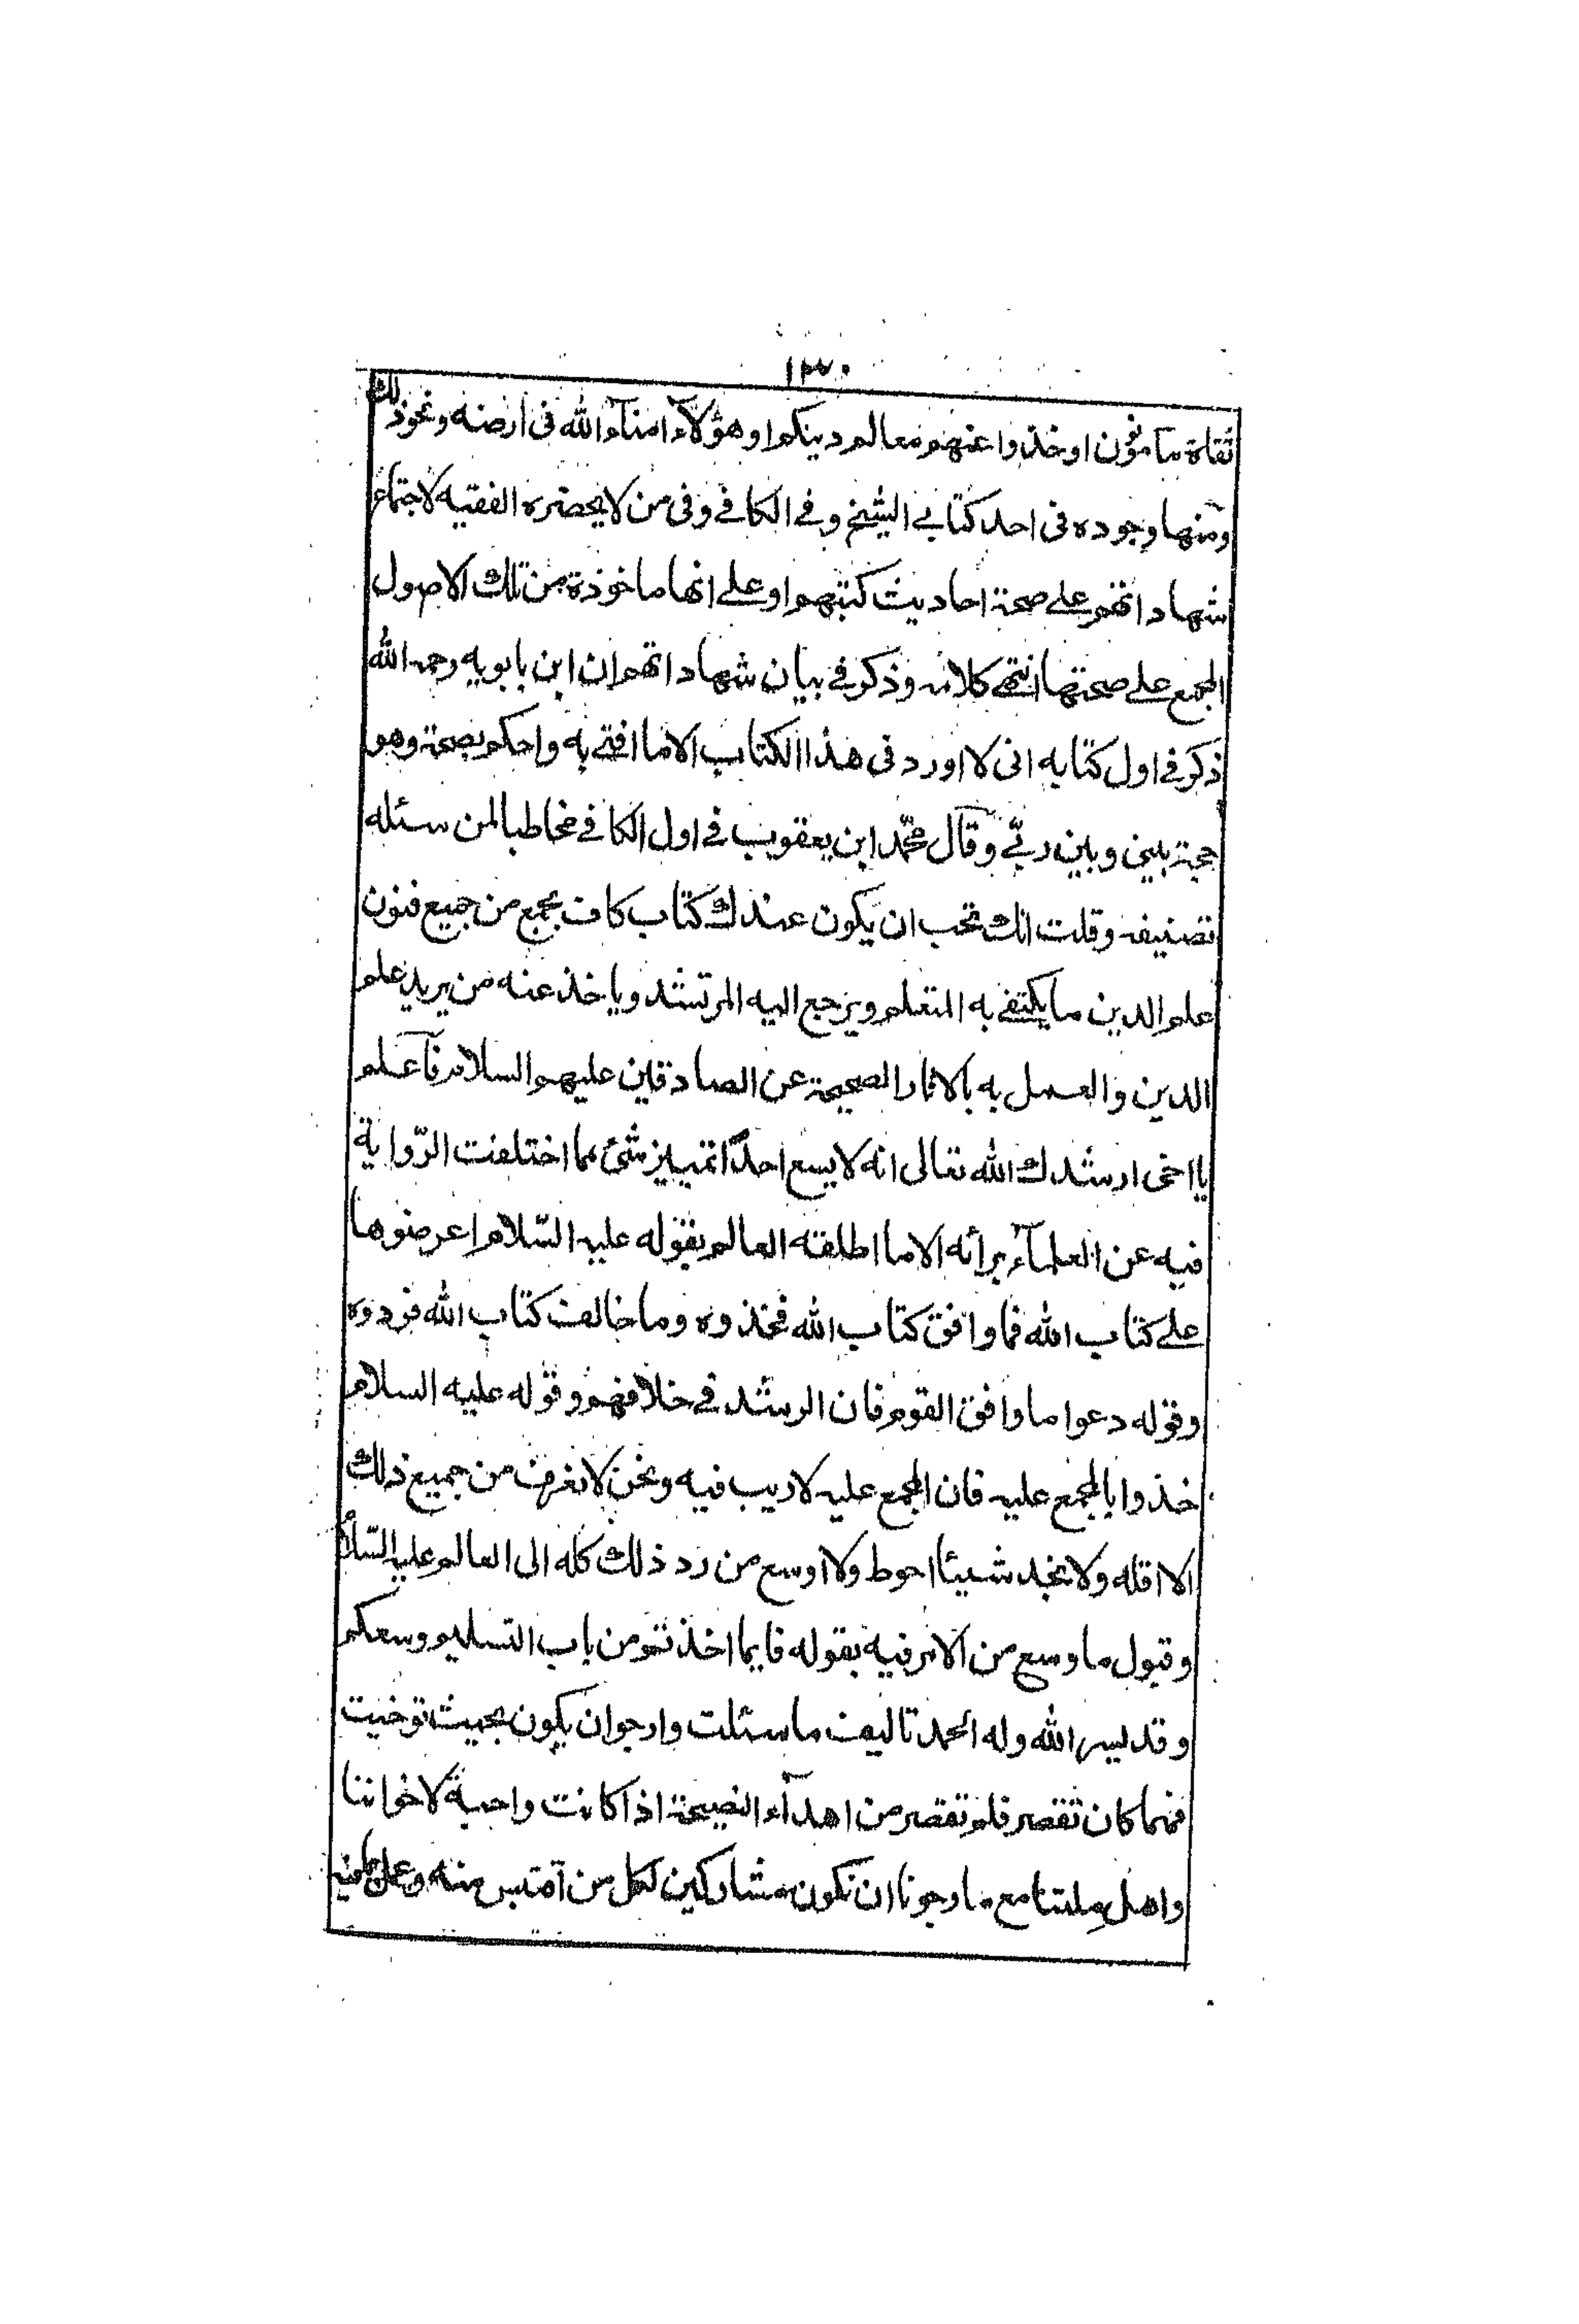 ١٣٠
ثقاة مأمونون او خذوا عنهم معالم دينكم او هؤلاء امناء الله فى ارضه ونحو ذلك
ومنها وجوده فى احد كتابي الشيخ وفي الكافي وفى من لا يحضره الفقيه لاجتماع
شهاداتهم على صحة احاديث كتبهم او على انها ماخوذة من تلك الاصول
المجمع على صحتها انتهى كلامه وذكر في بيان شهاداتهم ان ابن بابويه رحمه الله
ذكر في اول كتابه انى لا اورد فى هذا الكتاب الا ما افتى به واحكم بصحته وهو
حجة بينى وبين ربّي وقال محمّد ابن يعقوب في اول الكافي مخاطبا لمن سئله
تصنيفه وقلت انك تحب ان يكون عندك كتاب كاف يجمع من جميع فنون
علم الدين ما يكتفى به المتعلم ويرجع اليه المرتشد وياخذ عنه من يريد علم
الدين والعمل به بالاثار الصحيحة عن الصادقين عليهم السلام فاعلم
يا اخى ارشدك الله تعالى انه لا يسع احدًا تمييز شئ مما اختلفت الرّواية
فيه عن العلمآء برأئه الا ما اطلقه العالم بقوله عليه السّلام اعرضوها
على كتاب الله فما وافق كتاب الله فخذوه وما خالف كتاب الله فردوه
وقوله دعوا ما وافق القوم فان الرشد في خلافهم وقوله عليه السلام
خذوا بالمجمع عليه فان المجمع عليه لا ريب فيه ونحن لا نعرف من جميع ذلك
الا اقله ولا نجد شيئا احوط ولا اوسع من رد ذلك كله الى العالم عليه السّلام
وقبول ما وسع من الامر فيه بقوله فايما اخذتم من باب التسليم وسعكم
وقد يسر الله وله الحمد تاليف ما سئلت وارجو ان يكون بحيث توخيت
فمهما كان تقصير فلم تقصر من اهدآء النصيحة اذا كانت واجبة لاخواننا
واهل ملتنا مع ما رجونا ان نكون مشاركين لكل من اقتبس منه وعمل بما فيه